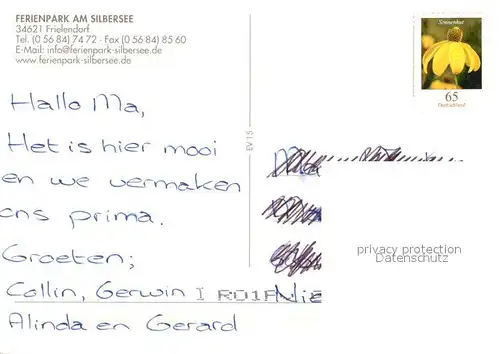 FERIENPARK AM SILBERSEE
34621 Frielendorf
Tel. (0 56 84) 74 72 - Fax (0 56 84) 85 60
E-Mail: info@ferienpark-silbersee.de
www.ferienpark-silbersee.de
Hallo Ma,
Het is hier mooi
en we vermaken
ons prima.
Groeten;
Collin, Gerwin
Alinda en Gerard
EV 15
Sonnenhut
65
Deutschland
privacy protection
Datenschutz